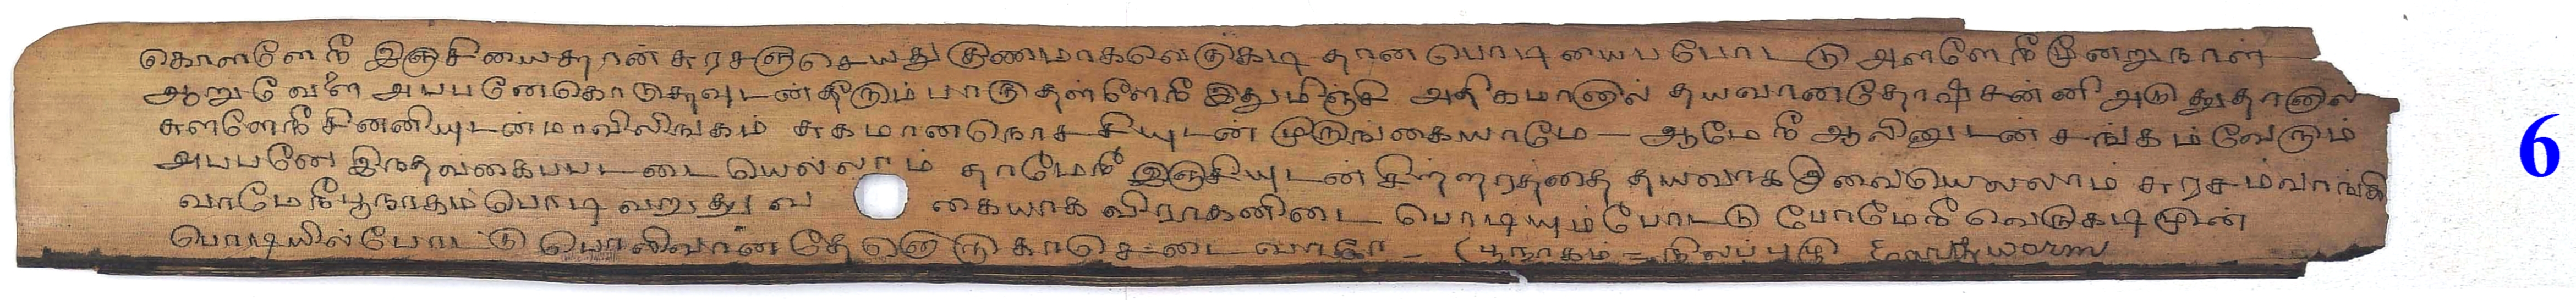 கொளளே நீ இஞசியைசாரன் சுரசஞசெயது குணமாகவெடுகடி தான பொடி யைப போட டு அளளே நீ மூனறு நாள்
ஆறு வேளை அபபனே கொடுசுவுடன் தீரும் பாரு தள்ளே நீ இதுமிஞ்சி அதிகமானால் தயவானதோஷ சன்னி அடு துதானால்
சுளளே நீ சினனியுடன் மாவிலிங்கம் சுகமான நொச சியுடன் முருங்கையாமே - ஆமே நீ ஆலினுடன் சங்கம் வேரும்
அபபனே இநதவகைபபட டை யெல்லாம் தாமே நீ இஞ்சியுடன் சிற்றரத்தை தயவாக இவையெலலாம் சுரசம் வாங்கி
வாமே நீ பூநாகம் பொடி வறு து வ கையாக விராகனிடை பொடியும் போட டு போமே நீ வெடுகடி மூன்
பொடியில் போட டு பொலிவான தே னொரு காசெடை வாமே - (பூநாகம் = நிலப்புழு Earthworm